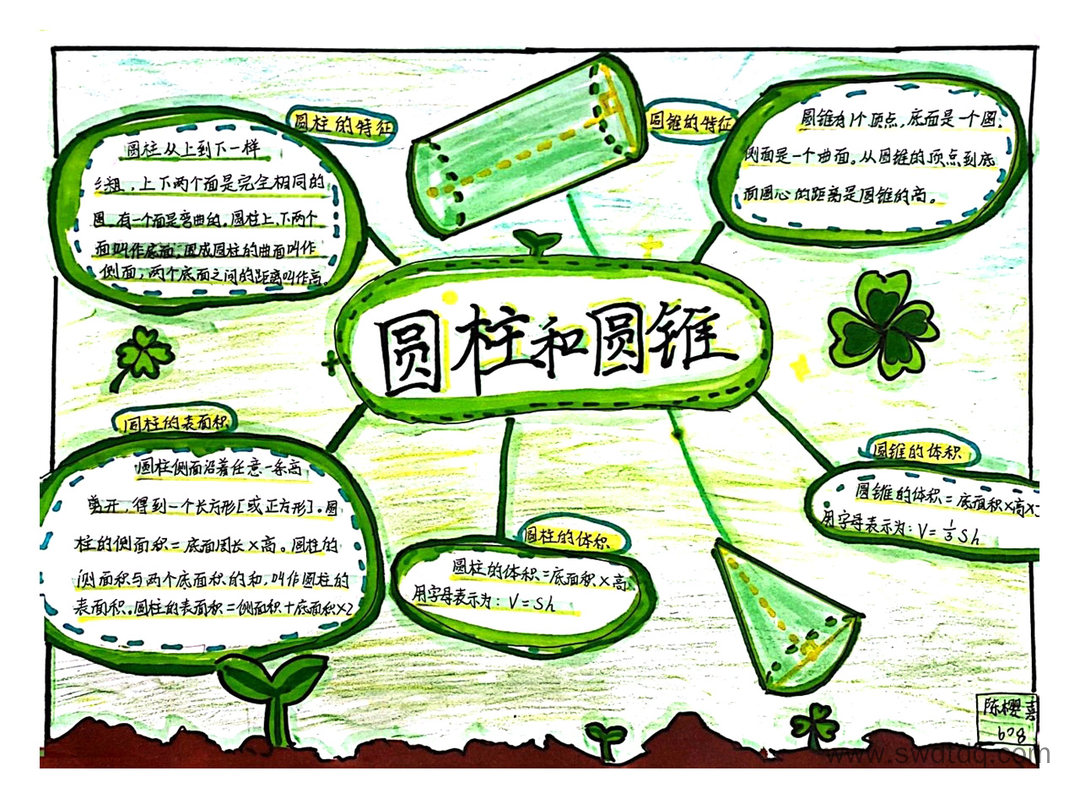 圆柱和圆锥
圆柱的特征
圆柱从上到下一样
粗，上下两个面是完全相同的
圆。有一个面是弯曲的。圆柱上、下两个
面叫作底面，围成圆柱的曲面叫作
侧面，两个底面之间的距离叫作高。
圆锥的特征
圆锥有1个顶点，底面是一个圆，
侧面是一个曲面。从圆锥的顶点到底
面圆心的距离是圆锥的高。
圆柱的表面积
圆柱侧面沿着任意一条高
剪开，得到一个长方形[或正方形]。圆
柱的侧面积=底面周长×高。圆柱的
侧面积与两个底面积的和，叫作圆柱的
表面积。圆柱的表面积=侧面积+底面积×2
圆柱的体积
圆柱的体积=底面积×高
用字母表示为：V=Sh
圆锥的体积
圆锥的体积=底面积×高×
用字母表示为：V=1/3Sh
陈樱嘉
608
www.swdtdq.com